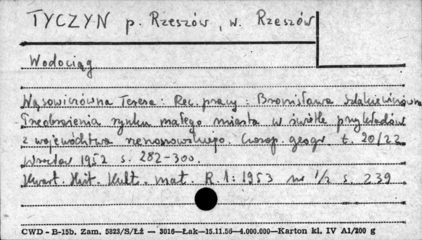 TYCZYN p. Rzeszów, w. Rzeszów
Wodociąg
Wąsowiczówna Teresa: Rec. pracy: Bronisława Szlakiewiczówna
Przeobrażenia rynku małego miasta w świetle przykładów
z województwa rzeszowskiego. Czasop. geogr. t. 20/22
Wrocław 1952 s. 282-300.
Kwart. Hist. Kult. mat. R.1: 1953 nr 1/2 s. 239
CWD - B-15b. Zam. 5823/S/Łż — 3016—Łak—15.11.56—4.000.000—Karton kl. IV A1/200 g